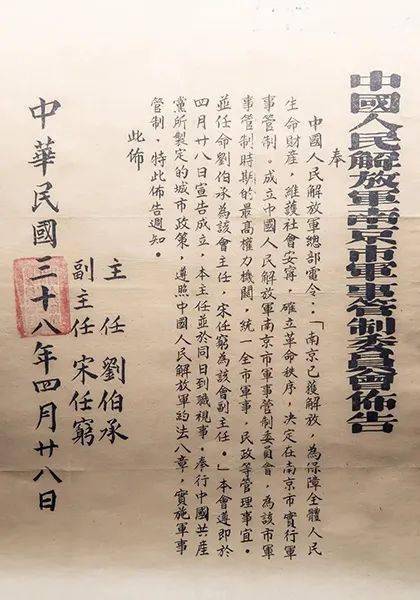 中國人民解放軍南京市軍事管制委員會佈告
奉
中國人民解放軍總部電令:「南京已獲解放,為保障全體人民
生命財產,維護社會安寧,確立革命秩序,決定在南京市實行軍
事管制。成立中國人民解放軍南京市軍事管制委員會,為該市軍
事管制時期的最高權力機關,統一全市軍事,民政等管理事宜。
並任命劉伯承為該會主任,宋任窮為該會副主任。」本會遵即於
四月廿八日宣告成立,本主任並於同日到職視事。奉行中國共產
黨所製定的城市政策,遵照中國人民解放軍約法八章,實施軍事
管制,特此佈告週知。
此佈
主任 劉伯承
副主任 宋任窮
中華民國三十八年四月廿八日